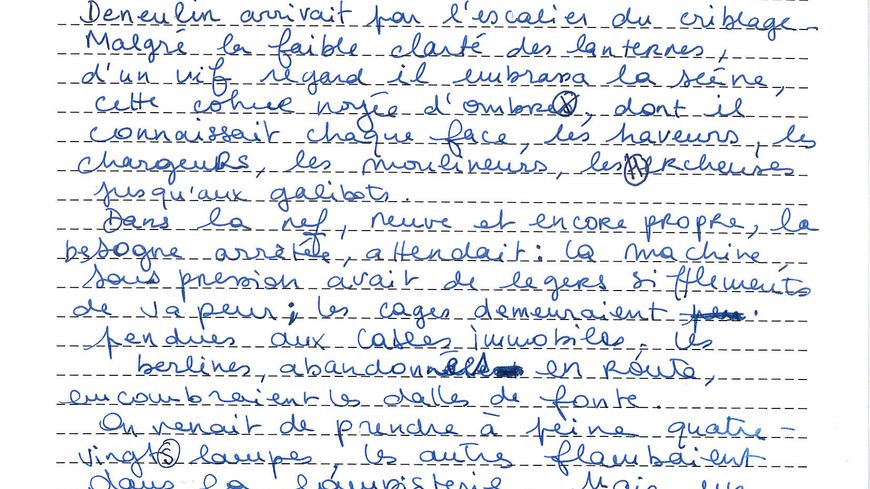 Deneulin arrivait par l'escalier du criblage
Malgré la faible clarté des lanternes,
d'un vif regard il embrasa la scène,
cette cohue noyée d'ombrex, dont il
connaissait chaque face, les haveurs, les
chargeuRs, les moulineurs, les hercheuses
jusqu'aux galibots.
Dans la nef, neuve et encore propre, la
besogne arrêtée, attendait : la machine,
sous pression avait de legers sifflements
de vapeur ; les cages demeuraient
pendues aux cables immobiles. les
berlines, abandonnées en Route,
encombraient les dalles de fonte.
On venait de prendre à peine quatre-
vingts lampes, les autres flambaient
dans la lampisterie. Mais un